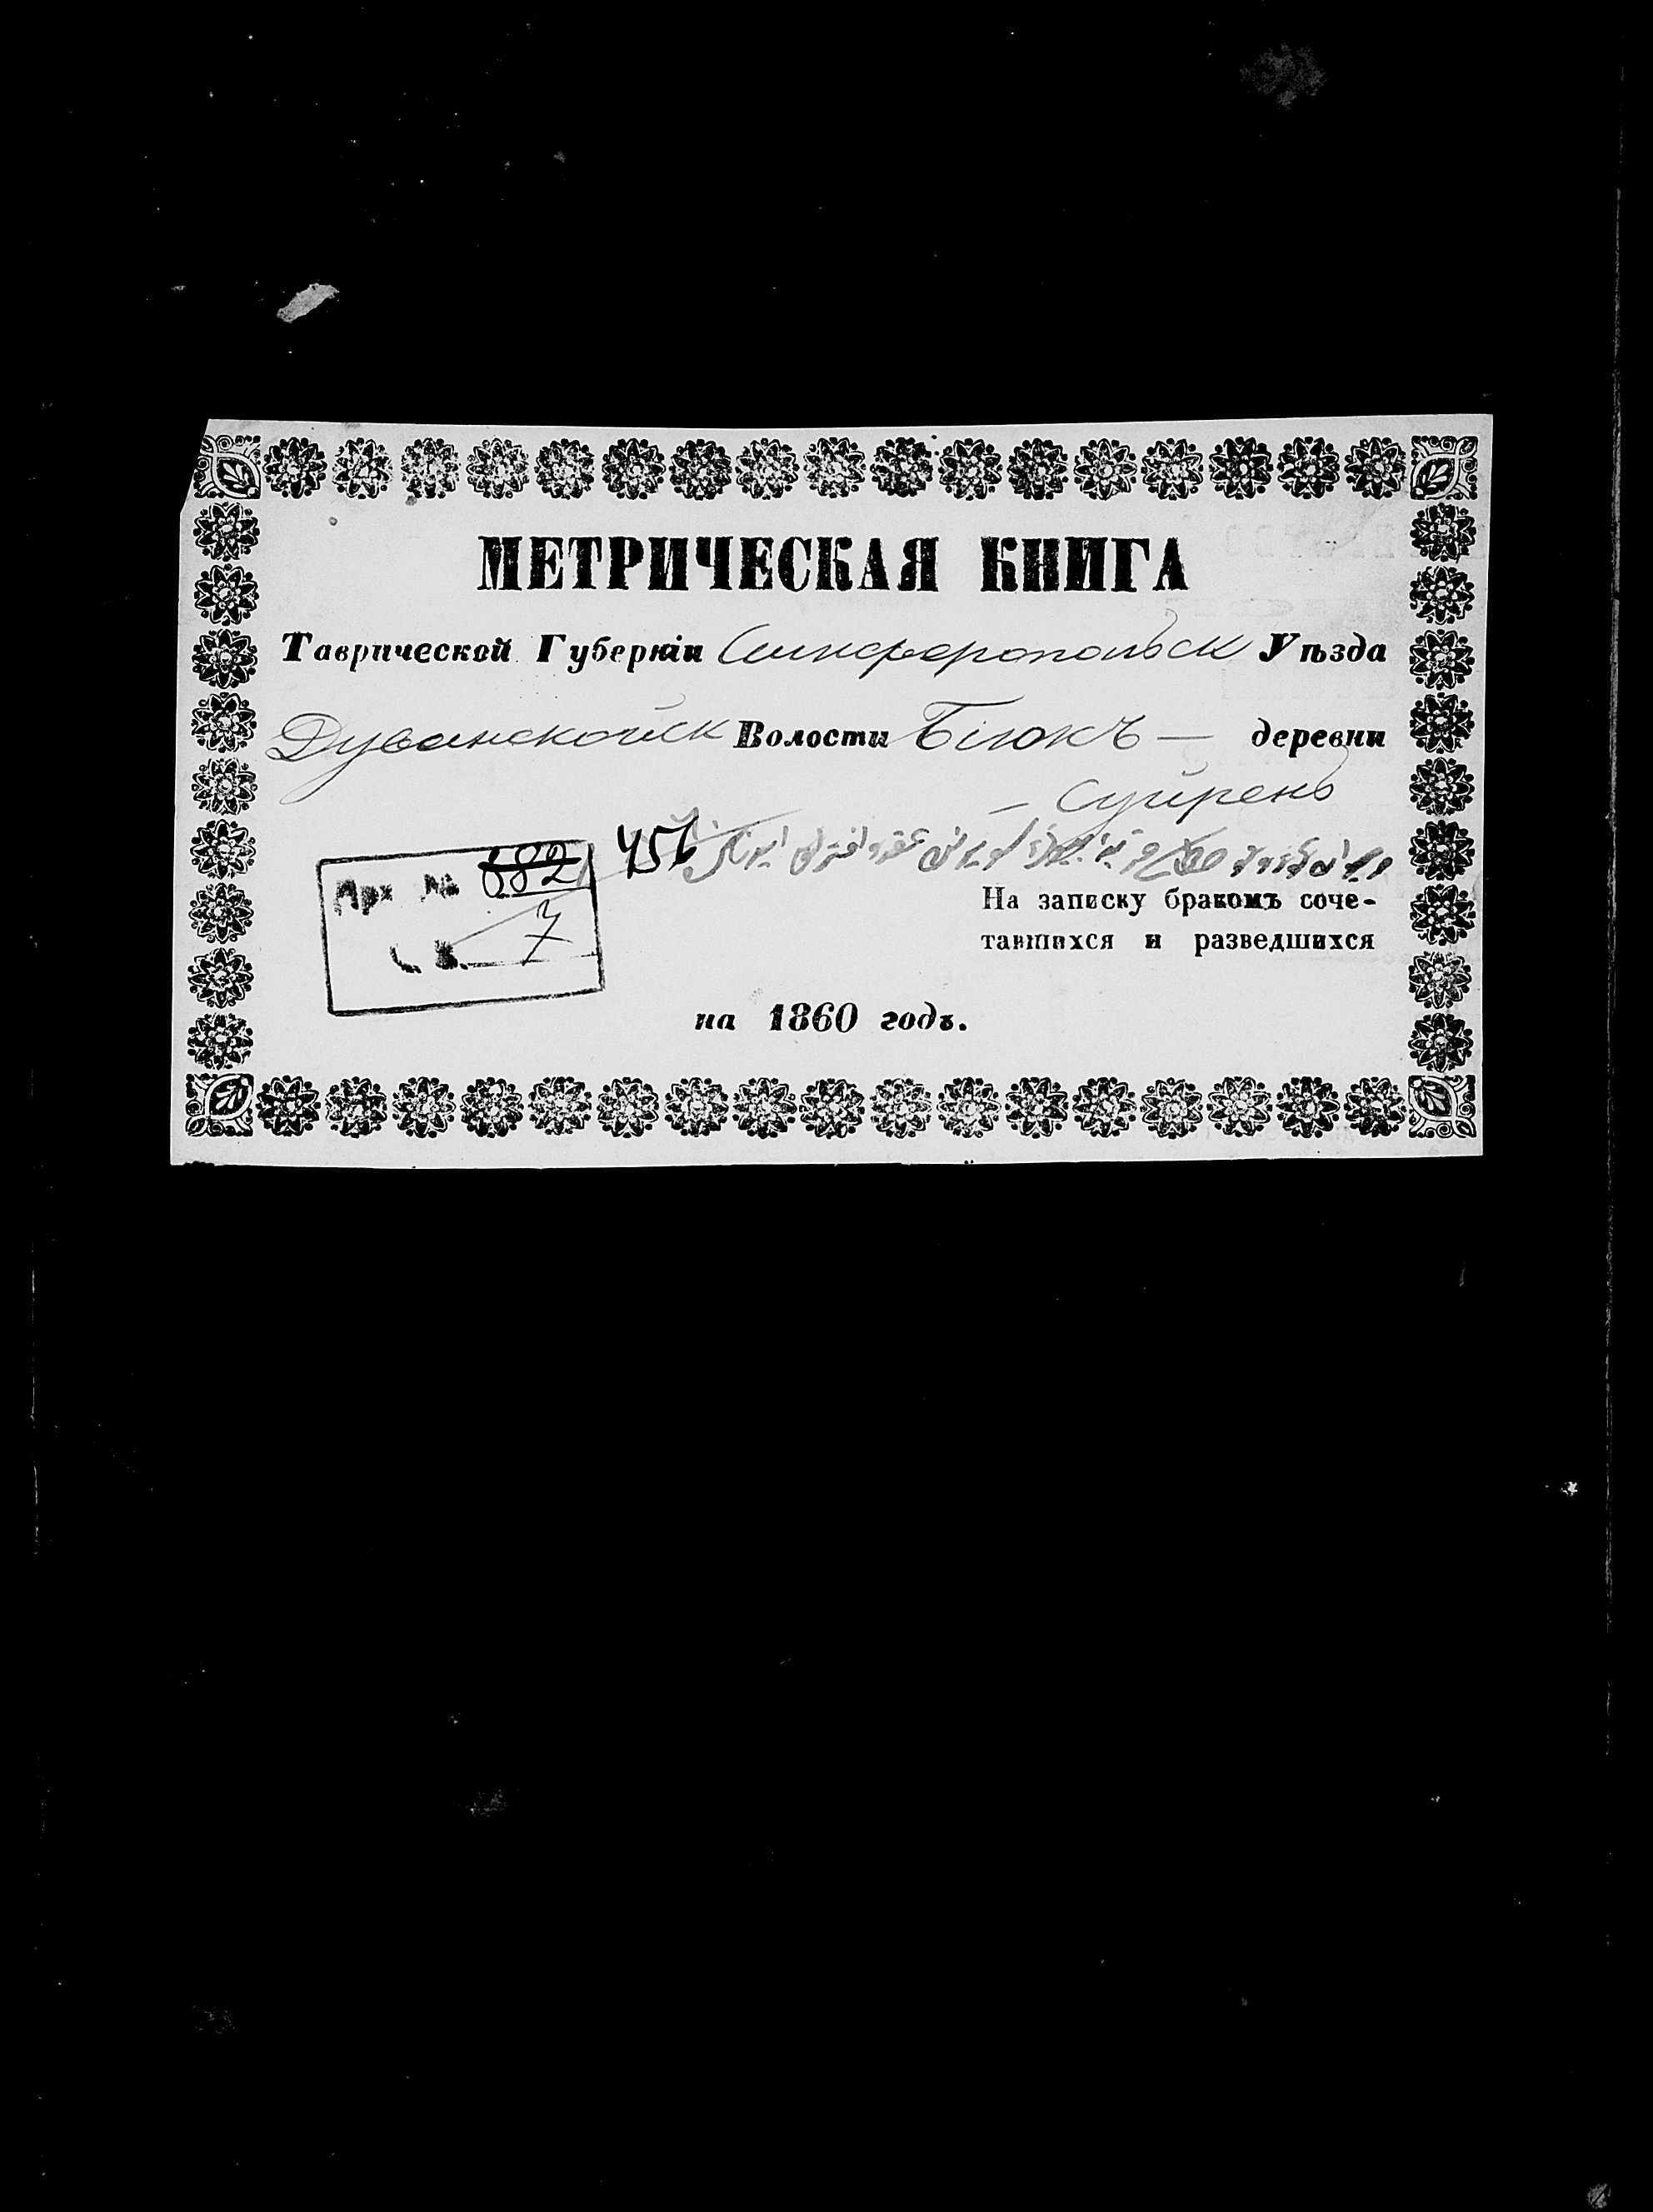 МЕТРИЧЕСКАЯ КНИГА
Таврической Губерніи Симферопольск Уѣзда
Дуванскойск Волости Біюкъ — деревни
— Суйрень
Арх № 682
456
7
На записку бракомъ соче-
тавшихся и разведшихся
на 1860 годъ.